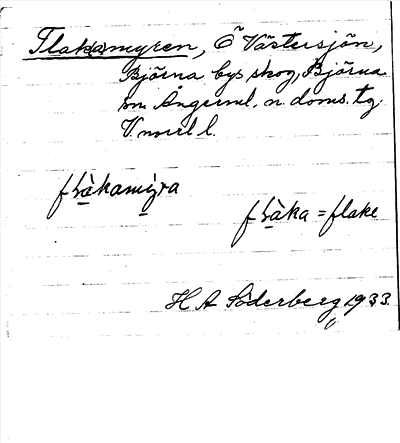 Flakamyren, Ö Västersjön,
Björna bys skog, Björna
sn. Ångerml. n. doms. tg.
V.nrrl l.
flàkamy̍ra
flàka = flake
H A Söderberg 1933.